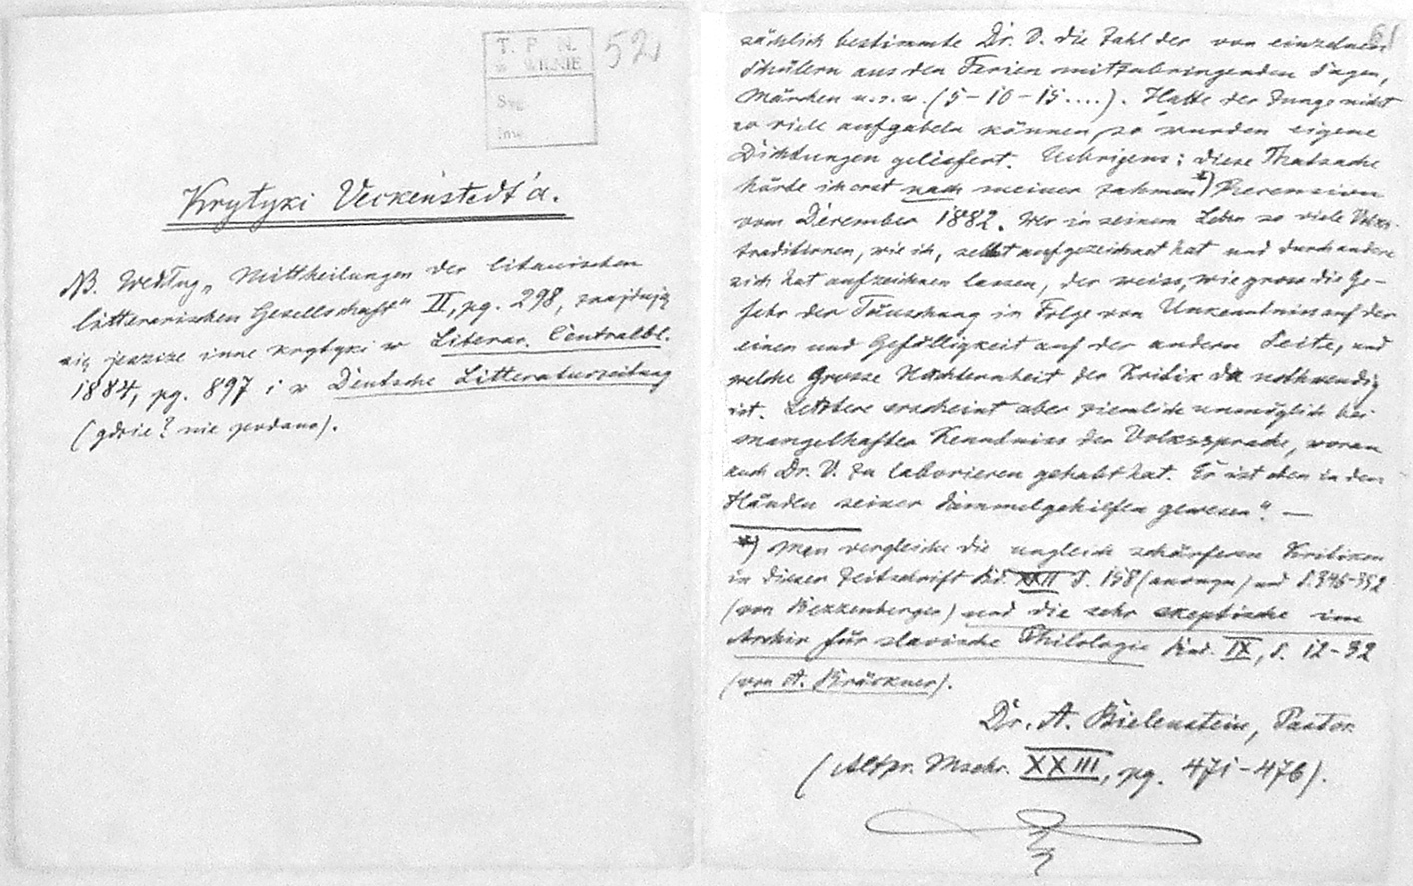 T. P. N.
w WILNIE
Syg.
Inw.
52
Krytyki Veckenstedt'a.
NB. Według „Mittheilungen der litauischen
litterarischen Gesellschaft" II, pg. 298, znajdują
się jeszcze inne krytyki w Literar. Centralbl.
1884, pg. 897 i w Deutsche Litteraturzeitung
(gdzie? nie podano).
61
sächlich bestimmte Dr. V. die Zahl der von einzelnen
Schülern aus den Ferien mitzubringenden Sagen,
Märchen u. s. w. (5-10-15....). Hatte der Junge nicht
so viele aufgabeln können, so wurden eigene
Dichtungen geliefert. Uebrigens: diese Thatsache
hörte ich erst nach meiner zahmen *) Recension
vom December 1882. Wer in seinem Leben so viele Volks-
traditionen, wie ich, selbst aufgezeichnet hat und durch andere
sich hat aufzeichnen lassen, der weiss, wie gross die Ge-
fahr der Täuschung in Folge von Unkenntniss auf der
einen und Gefälligkeit auf der andern Seite, und
welche grosse Nüchternheit der Kritik da nothwendig
ist. Letztere erscheint aber ziemlich unmöglich bei
mangelhafter Kenntniss der Volkssprache, woran
auch Dr. V. zu laborieren gehabt hat. Er ist eben in den
Händen seiner Sammelgehilfen gewesen". —
*) Man vergleiche die ungleich schärferen Kritiken
in dieser Zeitschrift Bd. XXII S. 158 (anonym) und S. 346-352
(von Bezzenberger) und die sehr skeptische im
Archiv für slavische Philologie Bnd. IX, S. 12-32
(von A. Brückner).
Dr. A. Bielenstein, Pastor.
(Altpr. Mschr. XXIII, pg. 471-476).